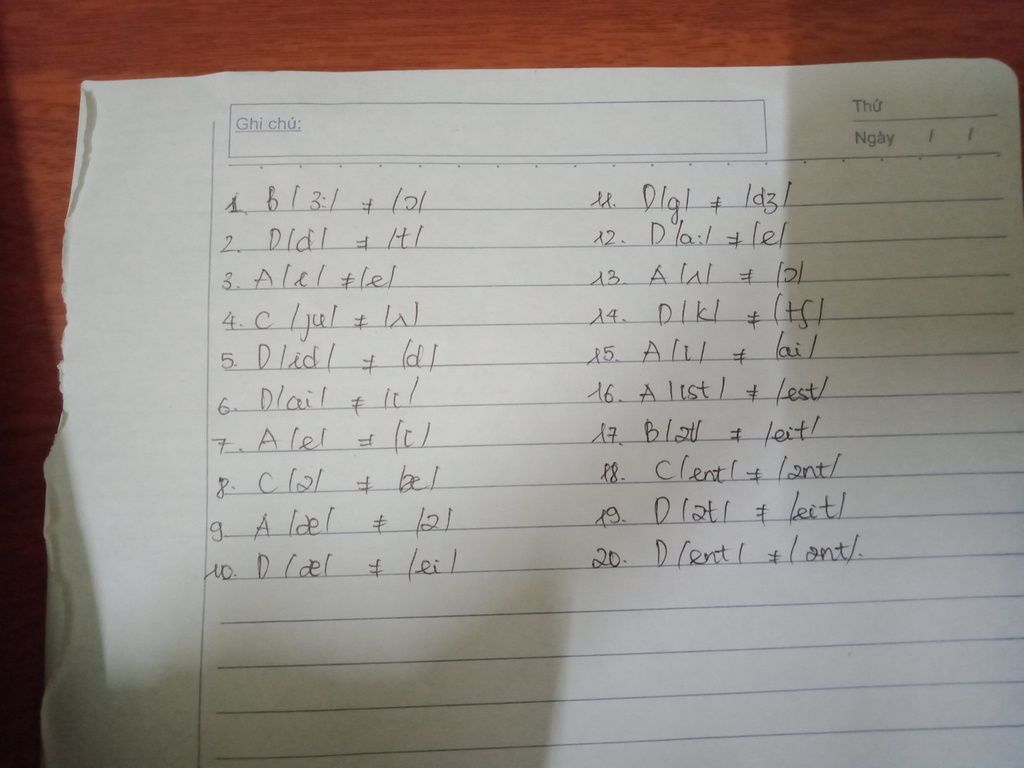 Ghi chú:
Thứ
Ngày / /
1. B /ɜ:/ ≠ /ɔ/
2. D /d/ ≠ /t/
3. A /ɛ/ ≠ /e/
4. C /ju/ ≠ /ʌ/
5. D /id/ ≠ /d/
6. D /ai/ ≠ /ɪ/
7. A /e/ ≠ /ɪ/
8. C /ə/ ≠ /æ/
9. A /æ/ ≠ /ə/
10. D /æ/ ≠ /ei/
11. D /g/ ≠ /dʒ/
12. D /a:/ ≠ /e/
13. A /ʌ/ ≠ /ɔ/
14. D /k/ ≠ /tʃ/
15. A /ɪ/ ≠ /ai/
16. A /ɪst/ ≠ /est/
17. B /ət/ ≠ /eit/
18. C /ent/ ≠ /ənt/
19. D /ət/ ≠ /eit/
20. D /ent/ ≠ /ənt/.